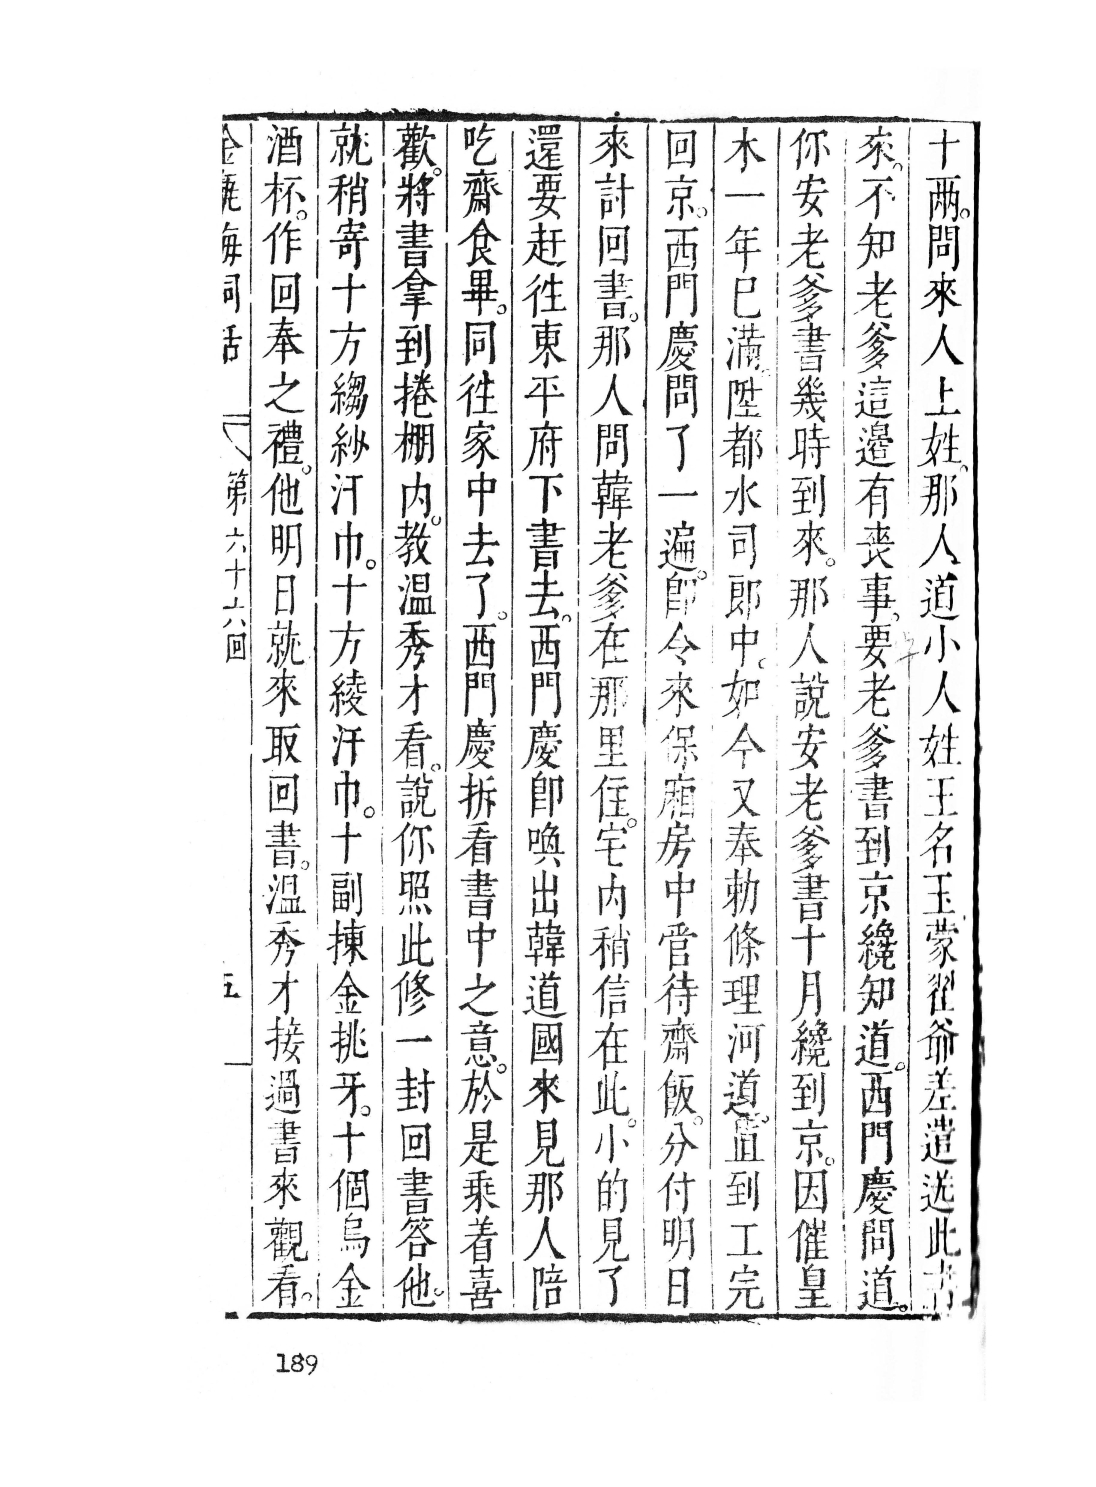 十兩。問來人上姓。那人道小人姓王名玉蒙翟爺差遣送此書
來。不知老爹這邊有喪事。要老爹書到京纔知道。西門慶問道。
你安老爹書幾時到來。那人說安老爹書十月纔到京。因催皇
木一年已滿。陞都水司郎中。如今又奉勅條理河道。直到工完
回京。西門慶問了一遍。卽令來保廂房中管待齋飯。分付明日
來討回書。那人問韓老爹在那里住。宅內稍信在此。小的見了
還要赶徃東平府下書去。西門慶卽喚出韓道國來見那人陪
吃齋食畢。同徃家中去了。西門慶拆看書中之意。於是乘着喜
歡。將書拿到捲棚內。教溫秀才看。說你照此修一封回書答他。
就稍寄十方縐紗汗巾。十方綾汗巾。十副揀金挑牙。十個烏金
酒杯。作回奉之禮。他明日就來取回書。溫秀才接過書來觀看。
金瓶梅詞話 第六十六回 五
189